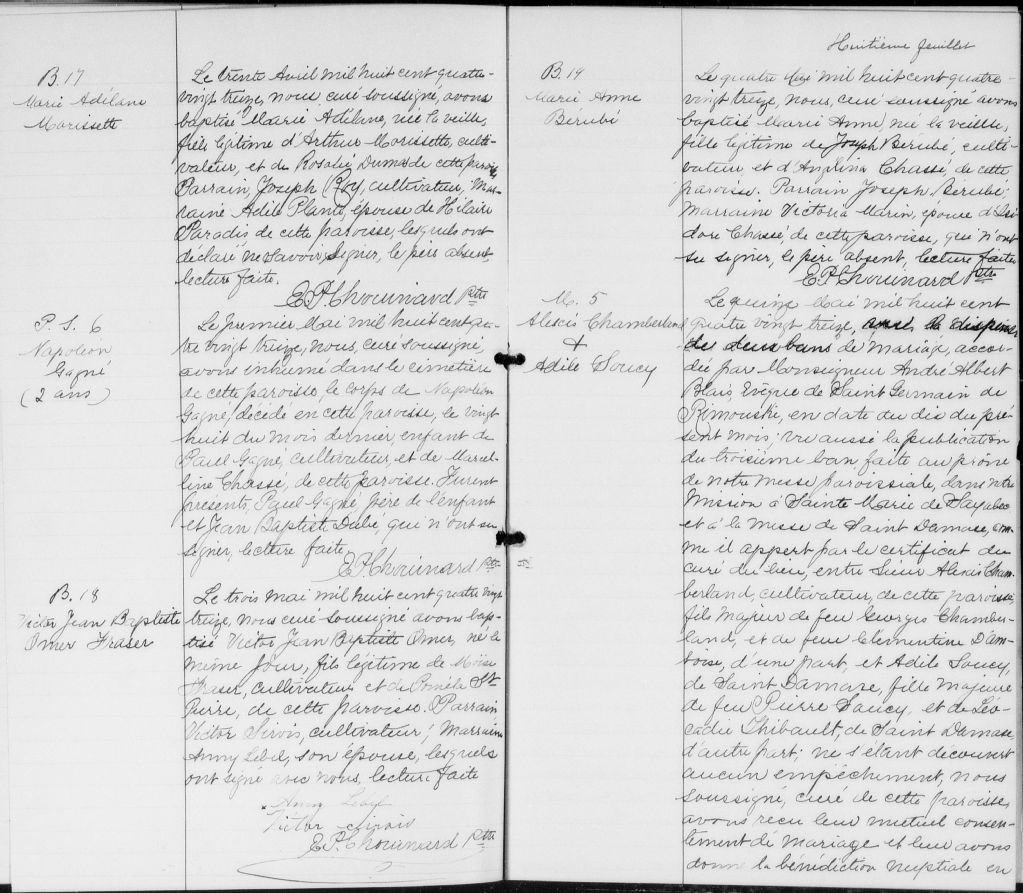 B. 17
Marie Adélane
Morissett
Le trente Avril mil huit cent quatre-
vingt treize, nous curé soussigné, avons
baptisé Marie Adélane, née la veille,
fille légitime d'Arthur Morissette, culti-
vateur, et de Rosalie Dumas de cette paroisse
Parrain, Joseph Roy, cultivateur, Mar-
raine Adile Plante, épouse de Hilaire
Paradis de cette paroisse, lesquels ont
déclaré ne savoir signer, le père absent,
lecture faite.
E. P. Chouinard Ptre
P. S. 6
Napoléon
Gagné
(2 ans)
Le premier Mai mil huit cent qua-
tre vingt treize, nous, curé soussigné,
avons inhumé dans le cimetière
de cette paroisse, le corps de Napoléon
Gagné, décédé en cette paroisse, le vingt
huit du mois dernier, enfant de
Paul Gagné, cultivateur, et de Marcel-
line Chassé, de cette paroisse. Furent
présents, Paul Gagné père de l'enfant
et Jean Baptiste Dubé, qui n'ont su
signer, lecture faite.
E. P. Chouinard Ptre
B. 18
Victor Jean Baptiste
Omer Fraser
Le trois mai mil huit cent quatre vingt
treize, nous curé soussigné avons bap-
tisé Victor Jean Baptiste Omer, né le
même jour, fils légitime de Moïse
Fraser, cultivateur et de Poméla St
Pierre, de cette paroisse. Parrain
Victor Sirois, cultivateur; Marraine
Anny Lebel, son épouse, lesquels
ont signé avec nous, lecture faite
Anny Lebel
Victor Sirois
E. P. Chouinard Ptre
Huitième feuillet
B. 19
Marie Anne
Berubé
Le quatre Mai mil huit cent quatre-
vingt treize, nous, curé soussigné avons
baptisé Marie Anne, née la veille,
fille légitime de Joseph Bérubé, culti-
vateur, et d'Anglina Chassé, de cette
paroisse. Parrain Joseph Bérubé
Marraine Victoria Marin, épouse d'Isi-
dore Chassé, de cette paroisse, qui n'ont
su signer, le père absent, lecture faite
E. P. Chouinard Ptre
M. 5
Alexis Chamberland
+
Adile Soucy
Le quinze Mai mil huit cent
quatre vingt treize, la dispense
de deux bans de mariage, accor-
dée par Monseigneur André Albert
Blais, Evêque de Saint Germain de
Rimouski, en date du dix du pré-
sent mois; vu aussi la publication
du troisième ban faite au prône
de notre messe paroissiale, dans notre
Mission à Sainte Marie de Sayabec
et à la messe de Saint Damase, com-
me il appert par le certificat du
curé du lieu, entre Sieur Alexis Cham-
berland, cultivateur, de cette paroisse,
fils majeur de feu Georges Chamber-
land, et de feue Clementine D'am-
boise, d'une part, et Adile Soucy,
de Saint Damase, fille majeure
de feu Pierre Soucy, et de Léo-
cadie Thibault, de Saint Damase,
d'autre part; ne s'étant découvert
aucun empêchement, nous
soussigné, curé de cette paroisse,
avons reçu leur mutuel consen-
tement de mariage et leur avons
donné la bénédiction nuptiale en